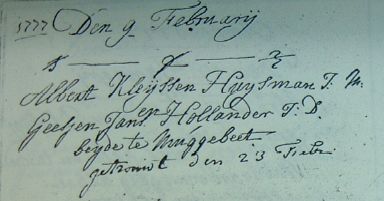 1777 Den 9 Februarij
Albert Kleyssen Huysman J. M.
Geesjen Jans Hollander J. D.
beyde te Muggebeet
getrouwt den 23 Febr.